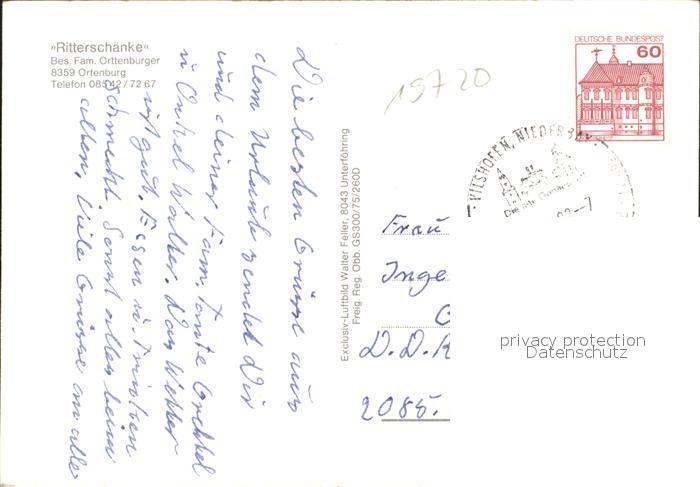 »Ritterschänke«
Bes. Fam. Orttenburger
8359 Ortenburg
Telefon 08542/7267
Die besten Grüße aus
dem Urlaub sendet Dir
und deiner Fam. Tante Gretel
u. Onkel Walter. Das Wetter
ist gut. Essen u. Trinken
schmeckt. Sonst alles beim
alten, Viele Grüsse an alle
Exclusiv-Luftbild Walter Feller, 8043 Unterföhring
Freig. Reg. Obb. GS300/75/260D
19720
DEUTSCHE BUNDESPOST
60
VILSHOFEN, NIEDERBAY.
Frau
Inge
D.D.R
2085.
privacy protection
Datenschutz